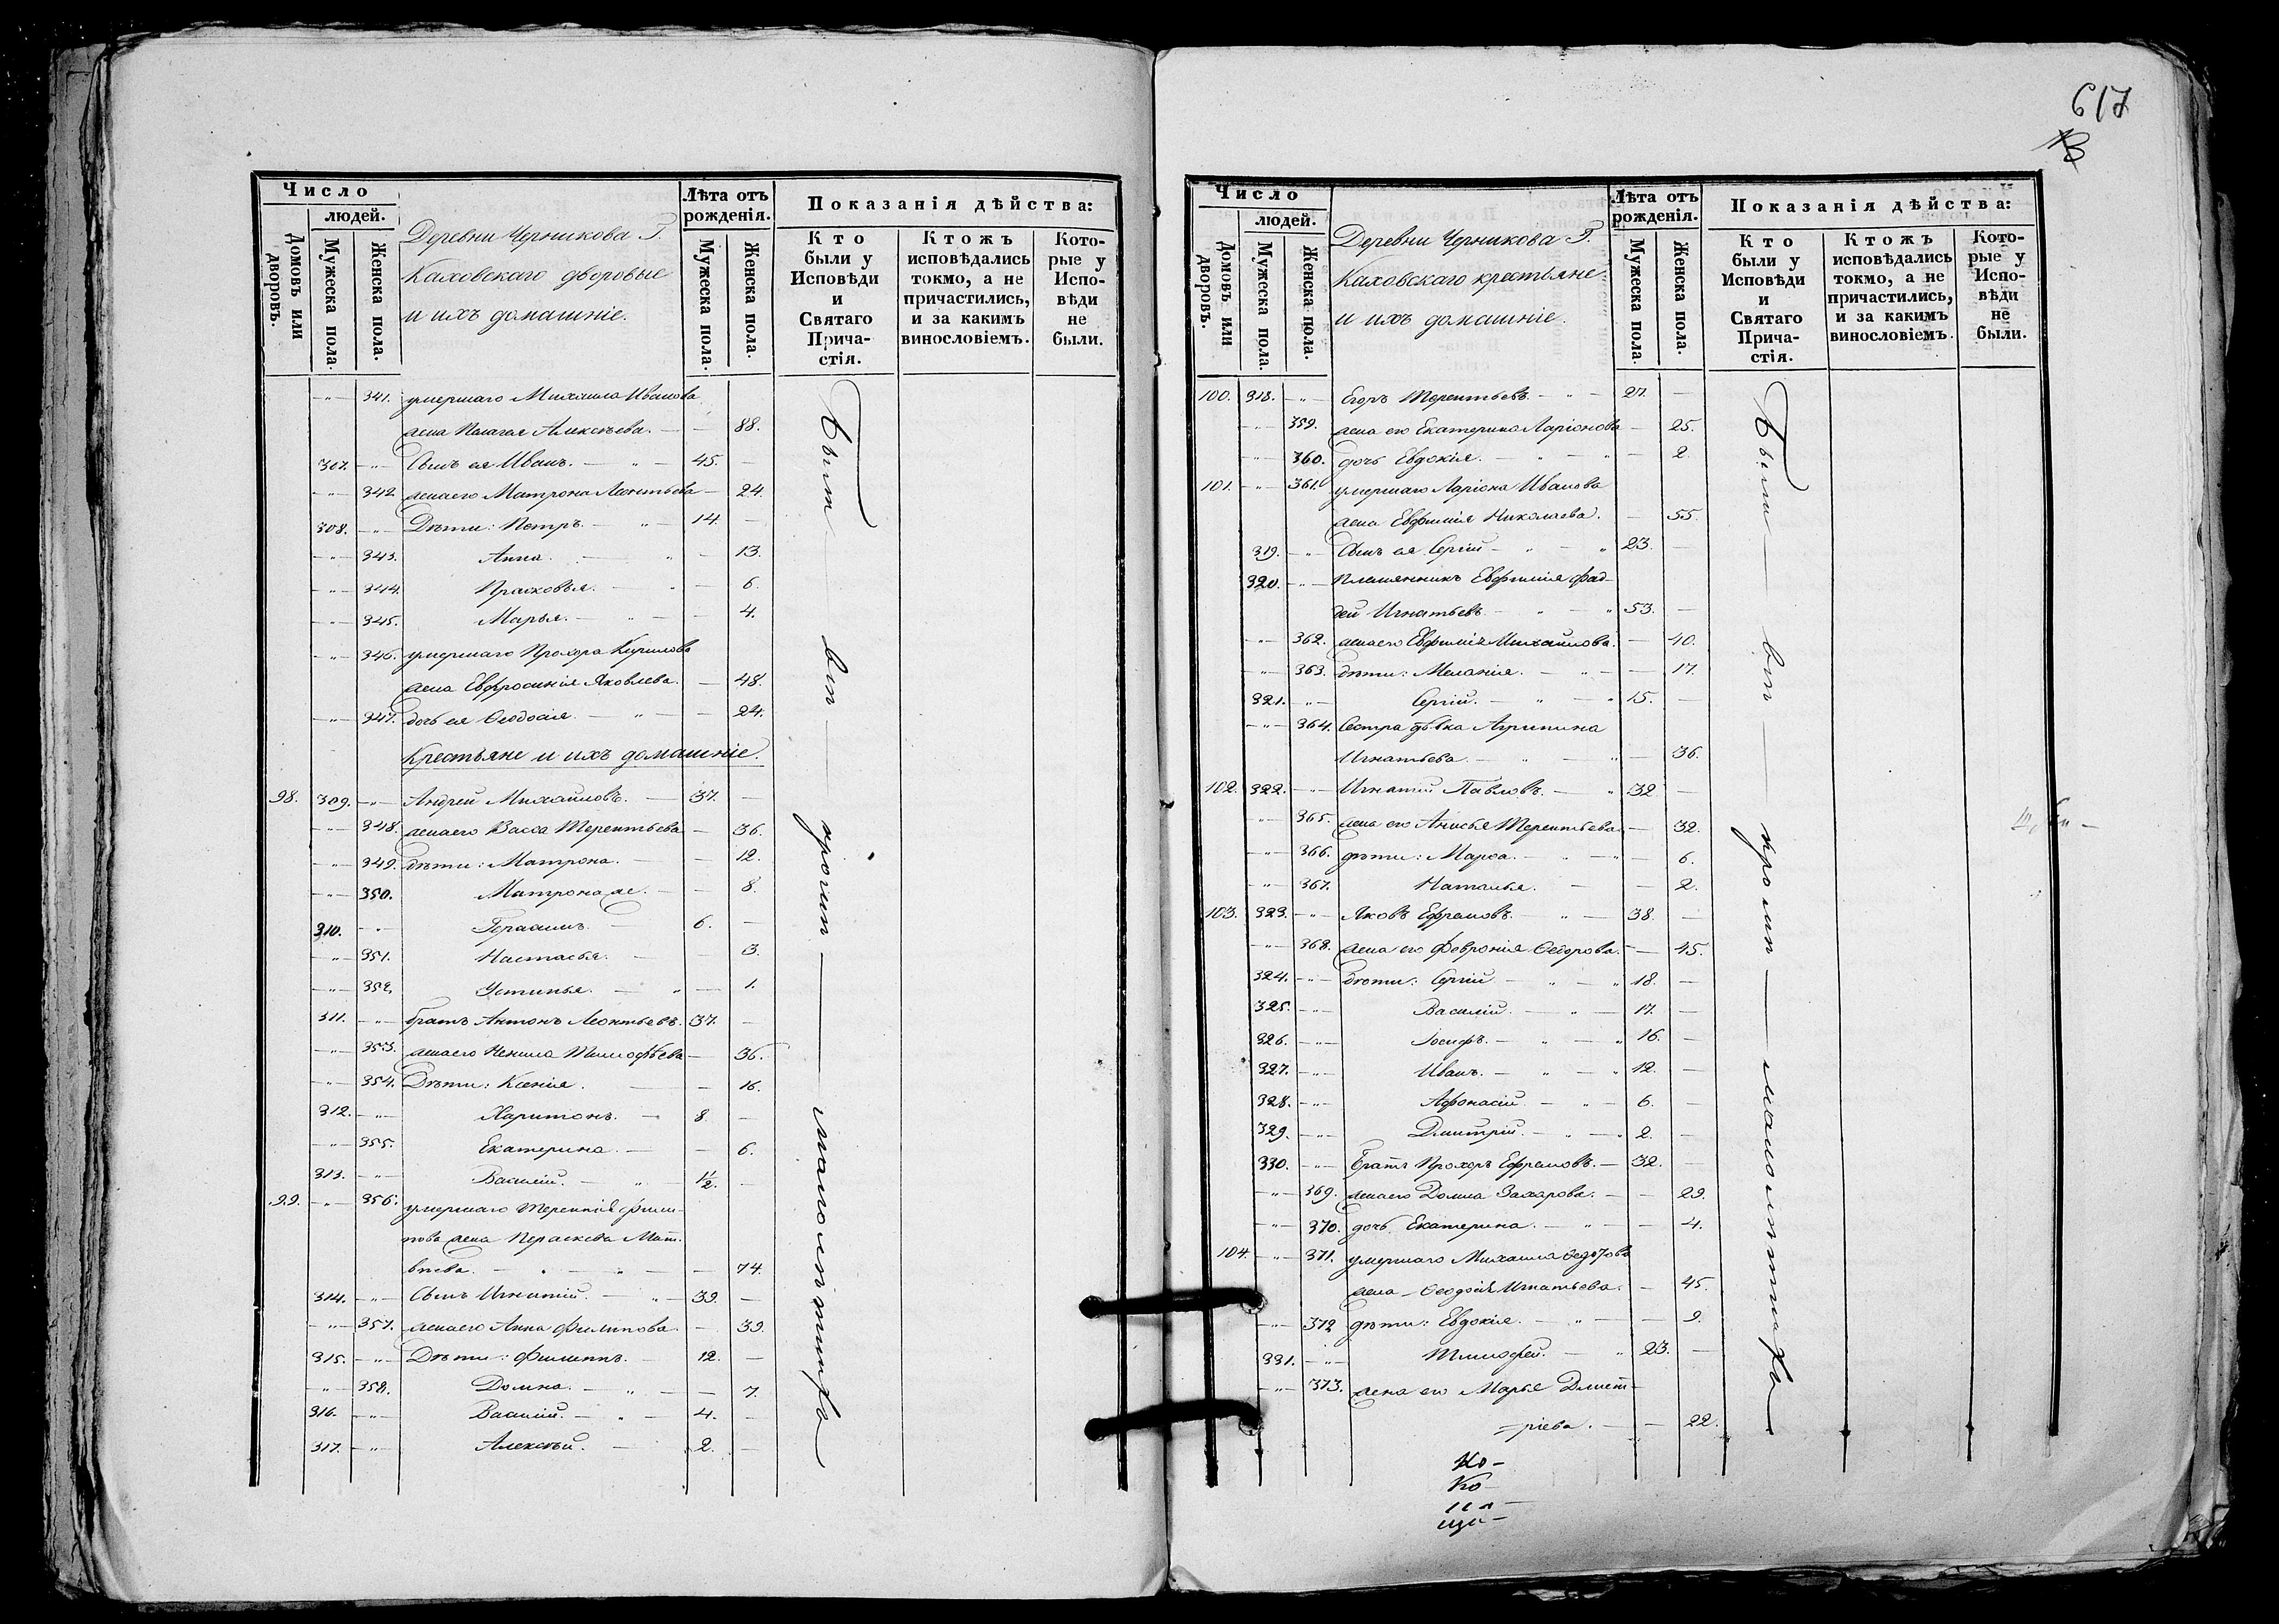 Число
людей.
Домовъ или дворовъ.
Мужеска пола.
Женска пола.
Деревни Черникова Г.
Каховскаго дворовые
и ихъ домашніе.
Лѣта отъ рожденія.
Мужеска пола.
Женска пола.
Показанія дѣйства:
Кто были у Исповѣди и Святаго Причастія.
Ктожъ исповѣдались токмо, а не причастились, и за какимъ винословіемъ.
Которые у Исповѣди не были.
-"- 341. умершаго Михаила Иванова
жена Пелагея Алексѣева. — — 88.
307. -"- Сынъ ея Иванъ. — " — 45. —
-"- 342 жена его Матрона Леонтьева — 24.
308. -"- Дѣти: Петръ. — " — 14. —
-"- 343. Анна. — " — 13.
-"- 344. Прасковья. — " — 6.
-"- 345. Марья. — " — — 4.
-"- 346. умершаго Прохора Кирилова
жена Евфросинія Яковлева. — 48.
-"- 347. дочь ея Ѳеодосія. — " — — 24.
Крестьяне и ихъ домашніе.
98. 309. -"- Андрей Михаиловъ. — 37. —
-"- 348. жена его Васса Терентьева — 36.
-"- 349. дѣти: Матрона. — — 12.
-"- 350. Матрона же. — — 8.
310. -"- Герасимъ. — 6. —
-"- 351. Настасья. — — 3.
-"- 352. Устинья. — " — 1.
311. -"- братъ Антонъ Леонтьевъ. 37. —
-"- 353. жена его Ненила Тимофѣева — 36.
-"- 354. Дѣти: Ксенія. — — 16.
312. -"- Харитонъ. — 8. —
-"- 355. Екатерина. — — 6.
313. -"- Василій. — " 1½. —
99. -"- 356. умершаго Терентія Филип-
пова жена Параскева Мат-
вѣева. — " — " — — 74.
314. -"- Сынъ Игнатій. — " — 39. —
-"- 357. жена его Анна Филипова. — 39.
315. -"- Дѣти: Филиппъ. — 12. —
-"- 358. Домна. — " — — 7.
316. -"- Василій. — " — 4. —
317. -"- Алексѣй. — 2. —
Были — вт — кромѣ — малолѣтнихъ
617
Число
людей.
Домовъ или дворовъ.
Мужеска пола.
Женска пола.
Деревни Черникова Г.
Каховскаго крестьяне
и ихъ домашніе.
Лѣта отъ рожденія.
Мужеска пола.
Женска пола.
Показанія дѣйства:
Кто были у Исповѣди и Святаго Причастія.
Ктожъ исповѣдались токмо, а не причастились, и за какимъ винословіемъ.
Которые у Исповѣди не были.
100. 318. -"- Егоръ Терентьевъ. — " — 27. —
-"- 359. жена его Екатерина Ларіонова — 25.
-"- 360. дочь Евдокія. — " — " — 2.
101. -"- 361. умершаго Ларіона Иванова
жена Евфимія Николаева. — 55.
319. -"- Сынъ ея Сергій — " — " 23. —
320. -"- Племянникъ Евфиміи Фад-
дей Игнатьевъ. — " — " 53. —
-"- 362. жена его Евфимія Михайлова. — 40.
-"- 363. дѣти: Меланія. — " — — 17.
321. -"- Сергій. — " — " 15. —
-"- 364. Сестра дѣвка Агрипина
Игнатьева. — " — " — 36.
102. 322. -"- Игнатій Павловъ. — " 32. —
-"- 365. жена его Анисья Терентьева — 32.
-"- 366. дѣти: Марѳа. — " — " — 6.
-"- 367. Наталья. — — 2.
103. 323. -"- Яковъ Ефремовъ. — " — 38. —
-"- 368. жена его Февронія Ѳеодорова. — 45.
324. -"- дѣти: Сергій — " — " 18. —
325. -"- Василій. — " — 17. —
326. -"- Іосифъ. — " — " 16. —
327. -"- Иванъ. — " — " 12. —
328. -"- Афонасій. — " — 6. —
329. -"- Дмитрій. — " — " 2. —
330. -"- Братъ Прохоръ Ефремовъ. — 32. —
-"- 369. жена его Домна Захарова. — — 29.
-"- 370. дочь Екатерина. — " — — 4.
104. -"- 371. умершаго Михаила Ѳедотова
жена — Ѳеодосія Игнатьева. — 45.
-"- 372 дѣти: Евдокія. — " — — 9.
331. -"- Тимофей. — " 23. —
-"- 373. жена его Марья Дмит-
-ріева. — — 22.
Были — вт — кромѣ — малолѣтнихъ